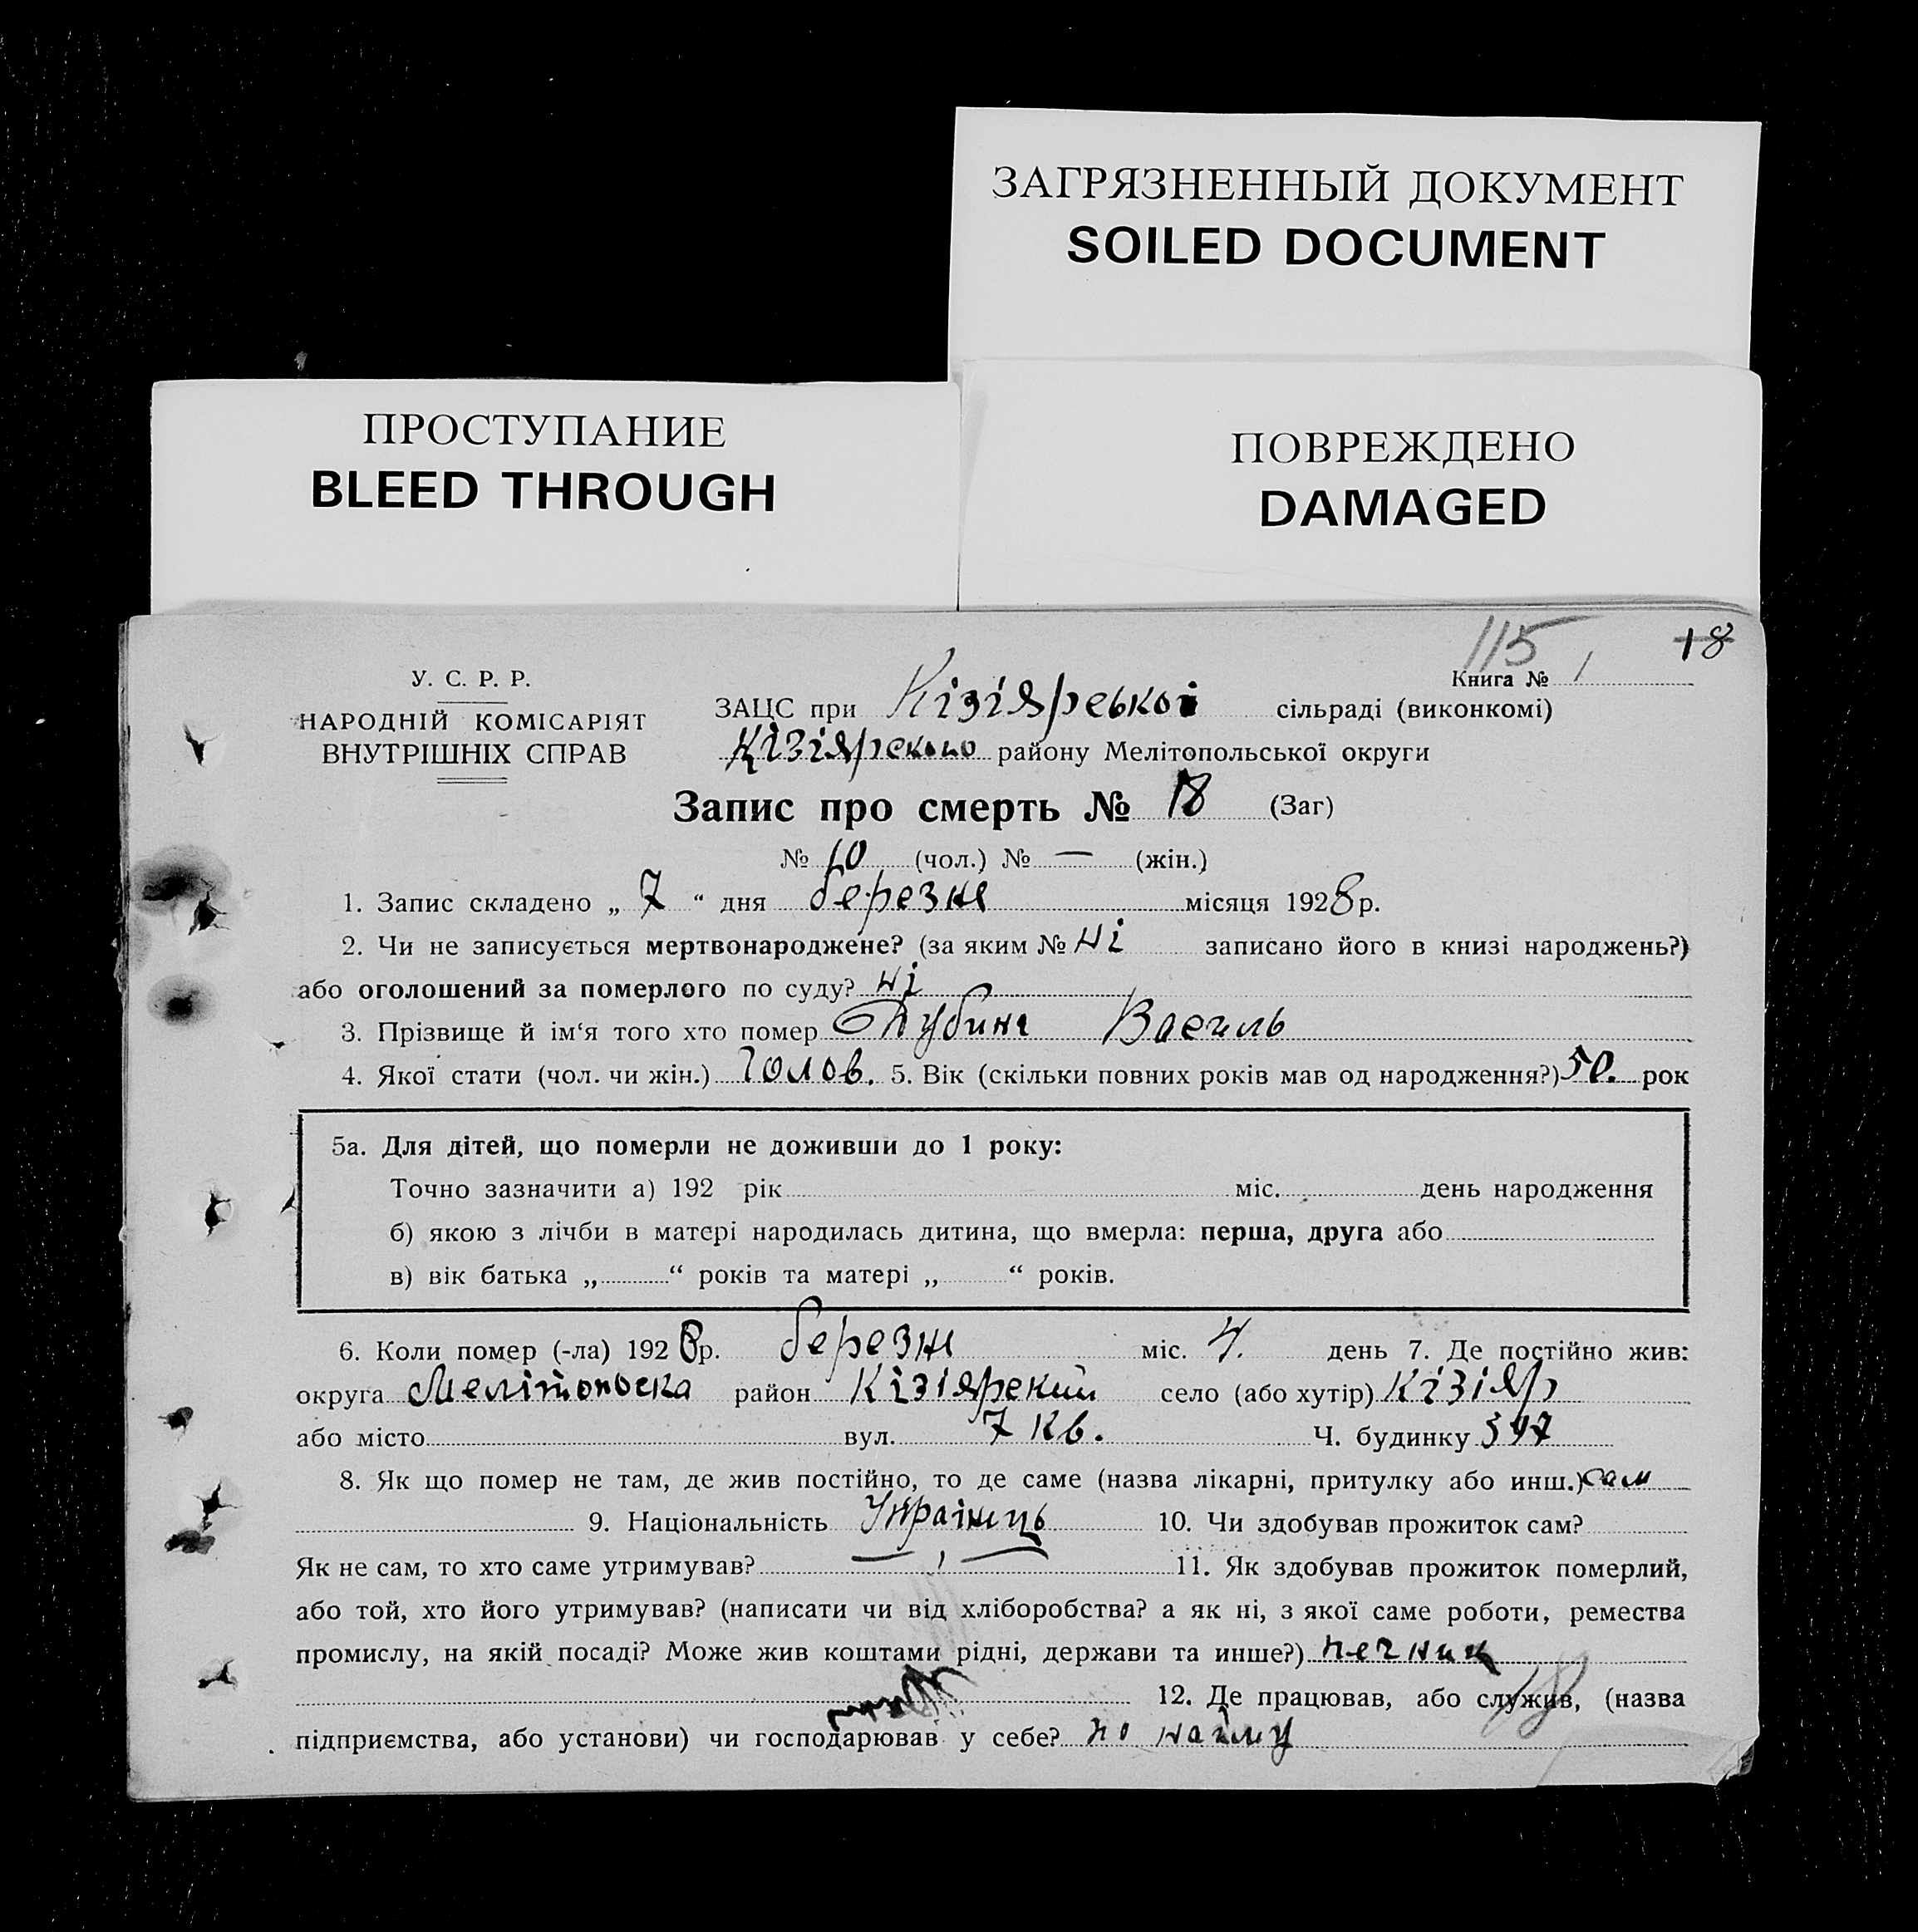 ЗАГРЯЗНЕННЫЙ ДОКУМЕНТ
SOILED DOCUMENT
ПРОСТУПАНИЕ
BLEED THROUGH
ПОВРЕЖДЕНО
DAMAGED
115 18
У. С. Р. Р.
НАРОДНІЙ КОМІСАРІЯТ
ВНУТРІШНІХ СПРАВ
Книга № 1
ЗАЦС при Кізіярської сільраді (виконкомі)
Кізіярського району Мелітопольської округи
Запис про смерть № 18 (Заг)
№ 10 (чол.) № — (жін.)
1. Запис складено „ 7 “ дня березня місяця 1928 р.
2. Чи не записується мертвонароджене? (за яким № ні записано його в книзі народжень?)
або оголошений за померлого по суду? ні
3. Прізвище й ім‘я того хто помер Дубина Василь
4. Якої стати (чол. чи жін.) Чолов. 5. Вік (скільки повних років мав од народження?) 50. рок
5а. Для дітей, що померли не доживши до 1 року:
Точно зазначити а) 192 рік міс. день народження
б) якою з лічби в матері народилась дитина, що вмерла: перша, друга або
в) вік батька „ “ років та матері „ “ років.
6. Коли помер (-ла) 1928 р. березня міс. 4. день 7. Де постійно жив:
округа Мелітопольска район Кізіярский село (або хутір) Кізіяр
або місто вул. 7 кв. Ч. будинку 397
8. Як що помер не там, де жив постійно, то де саме (назва лікарні, притулку або инш.) сам
9. Національність Українець 10. Чи здобував прожиток сам?
Як не сам, то хто саме утримував? — , — 11. Як здобував прожиток померлий,
або той, хто його утримував? (написати чи від хліборобства? а як ні, з якої саме роботи, ремества
промислу, на якій посаді? Може жив коштами рідні, держави та инше?) печник
12. Де працював, або служив, (назва
18
підприємства, або установи) чи господарював у себе? по найму